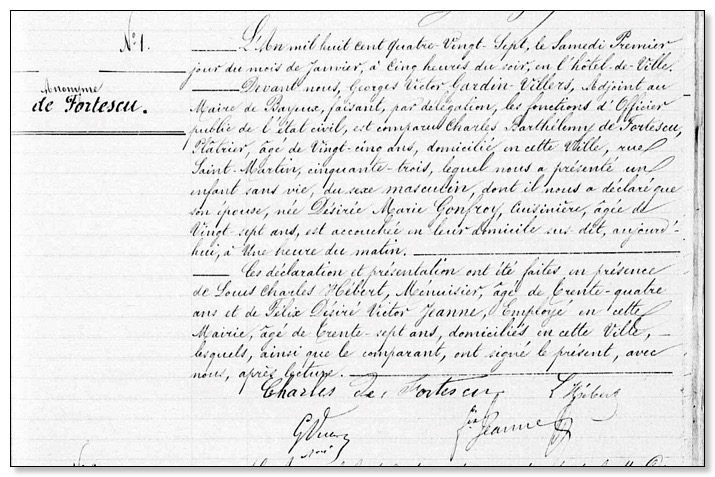 N.º 1.
Anonyme
de Fortescu.
L'An mil huit cent quatre-Vingt-Sept, le Samedi Premier
jour du mois de Janvier, à Cinq heures du soir, en l'hôtel-de-Ville
Devant nous, Georges Victor Gardin-Villers, Adjoint au
Maire de Bayeux, faisant, par délégation, les fonctions d'Officier
public de l'état civil, est comparu Charles Barthélemy de Fortescu,
Plâtrier, âgé de Vingt-cinq ans, domicilié en cette Ville, rue
Saint-Martin, cinquante-trois, lequel nous a présenté un
enfant sans vie, du sexe masculin, dont il nous a déclaré que
son épouse, née Désirée Marie Gonfroy, Cuisinière, âgée de
Vingt sept ans, est accouchée en leur domicile sus-dit, aujourd'-
hui, à Une heure du matin.
Ces déclaration et présentation ont été faites en présence
de Louis Charles Hébert, Menuisier, âgé de trente-quatre
ans et de Félix Désiré Victor Jeanne, Employé en cette
Mairie, âgé de trente-sept ans, domiciliés en cette Ville,
lesquels, ainsi que le comparant, ont signé le présent, avec
nous, après lecture.
Charles de Fortescu L Hébert
Jeanne